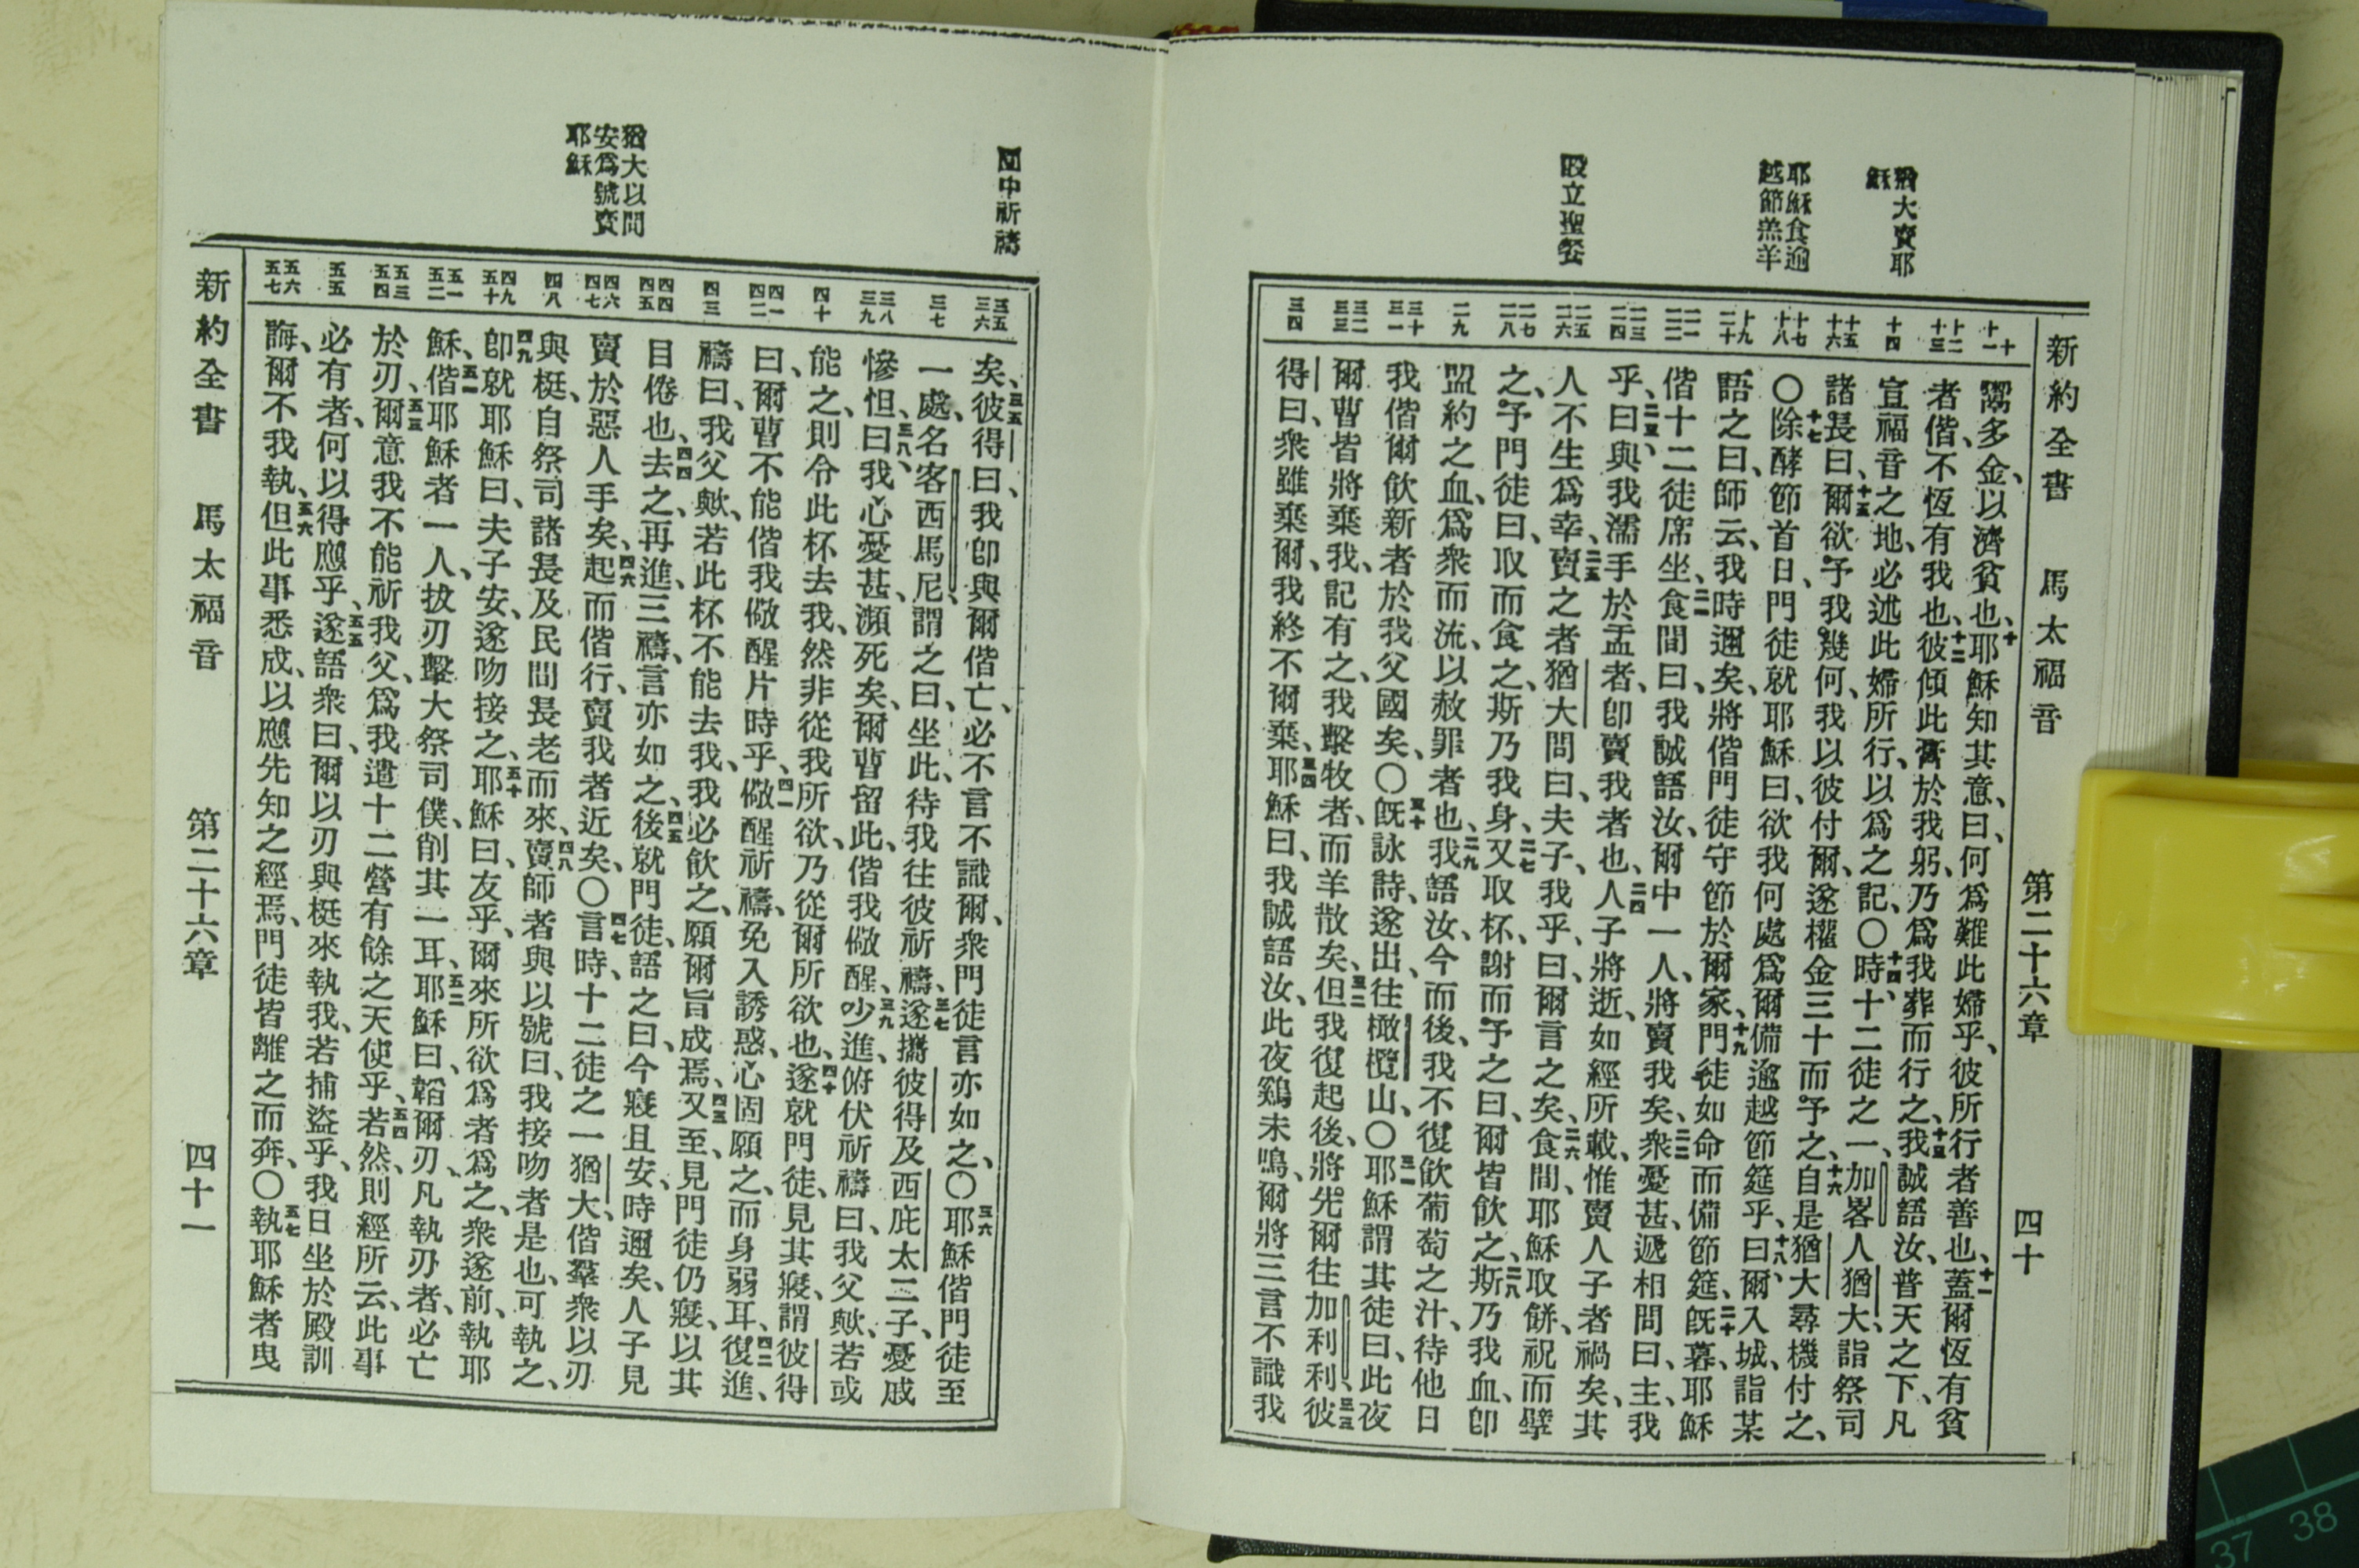 新約全書　馬太福音　第二十六章　四十
猶大賣耶
穌
耶穌食逾
越節羔羊
設立聖餐
十
十一
十二
十三
十四
十五
十六
十七
十八
十九
二十
二一
二二
二三
二四
二五
二六
二七
二八
二九
三十
三一
三二
三三
三四
鬻多金、以濟貧也、十耶穌知其意、曰、何爲難此婦乎、彼所行者善也、十一蓋爾恆有貧
者偕、不恆有我也、十二彼傾此膏於我躬、乃爲我葬而行之、十三我誠語汝、普天之下、凡
宣福音之地、必述此婦所行、以爲之記、〇十四時、十二徒之一、加畧人猶大、詣祭司
諸長曰、十五爾欲予我幾何、我以彼付爾、遂權金三十而予之、十六自是猶大尋機付之、
〇十七除酵節首日、門徒就耶穌曰、欲我何處爲爾備逾越節筵乎、十八曰、爾入城、詣某
語之曰、師云、我時邇矣、將偕門徒守節於爾家、十九門徒如命而備節筵、二十旣暮、耶穌
偕十二徒席坐、二一食間曰、我誠語汝、爾中一人、將賣我矣、二二衆憂甚、遞相問曰、主、我
乎、二三曰、與我濡手於盂者、卽賣我者也、二四人子將逝、如經所載、惟賣人子者禍矣、其
人不生爲幸、二五賣之者猶大問曰、夫子、我乎、曰、爾言之矣、二六食間、耶穌取餅、祝而擘
之、予門徒曰、取而食之、斯乃我身、二七又取杯、謝而予之曰、爾皆飲之、二八斯乃我血、卽
盟約之血、爲衆而流、以赦罪者也、二九我語汝、今而後、我不復飲葡萄之汁、待他日
我偕爾飲新者於我父國矣、〇三十旣詠詩、遂出、往橄欖山、〇三一耶穌謂其徒曰、此夜
爾曹皆將棄我、記有之、我擊牧者、而羊散矣、三二但我復起後、將先爾往加利利、三三彼
得曰、衆雖棄爾、我終不爾棄、三四耶穌曰、我誠語汝、此夜鷄未鳴、爾將三言不識我
園中祈禱
猶大以問
安爲號賣
耶穌
三五
三六
三七
三八
三九
四十
四一
四二
四三
四四
四五
四六
四七
四八
四九
五十
五一
五二
五三
五四
五五
五六
五七
矣、三五彼得曰、我卽與爾偕亡、必不言不識爾、衆門徒言亦如之、〇三六耶穌偕門徒至
一處、名客西馬尼、謂之曰、坐此、待我往彼祈禱、三七遂攜彼得及西庇太二子、憂戚
慘怛、三八曰、我心憂甚、瀕死矣、爾曹留此、偕我儆醒、三九少進、俯伏祈禱曰、我父歟、若或
能之、則令此杯去我、然非從我所欲、乃從爾所欲也、四十遂就門徒、見其寢、謂彼得
曰、爾曹不能偕我儆醒片時乎、四一儆醒祈禱、免入誘惑、心固願之、而身弱耳、四二復進、
禱曰、我父歟、若此杯不能去我、我必飲之、願爾旨成焉、四三又至、見門徒仍寢、以其
目倦也、四四去之、再進、三禱、言亦如之、四五後就門徒、語之曰、今寢且安、時邇矣、人子見
賣於惡人手矣、四六起而偕行、賣我者近矣、〇四七言時、十二徒之一猶大、偕羣衆以刃
與梃、自祭司諸長及民間長老而來、四八賣師者與以號曰、我接吻者是也、可執之、
四九卽就耶穌曰、夫子安、遂吻接之、五十耶穌曰、友乎、爾來所欲爲者爲之、衆遂前、執耶
穌、五一偕耶穌者一人、拔刃擊大祭司僕、削其一耳、五二耶穌曰、韜爾刃、凡執刃者、必亡
於刃、五三爾意我不能祈我父、爲我遣十二營有餘之天使乎、五四若然、則經所云、此事
必有者、何以得應乎、五五遂語衆曰、爾以刃與梃來執我、若捕盜乎、我日坐於殿訓
誨、爾不我執、五六但此事悉成、以應先知之經焉、門徒皆離之而奔、〇五七執耶穌者曳
新約全書　馬太福音　第二十六章　四十一
37 38